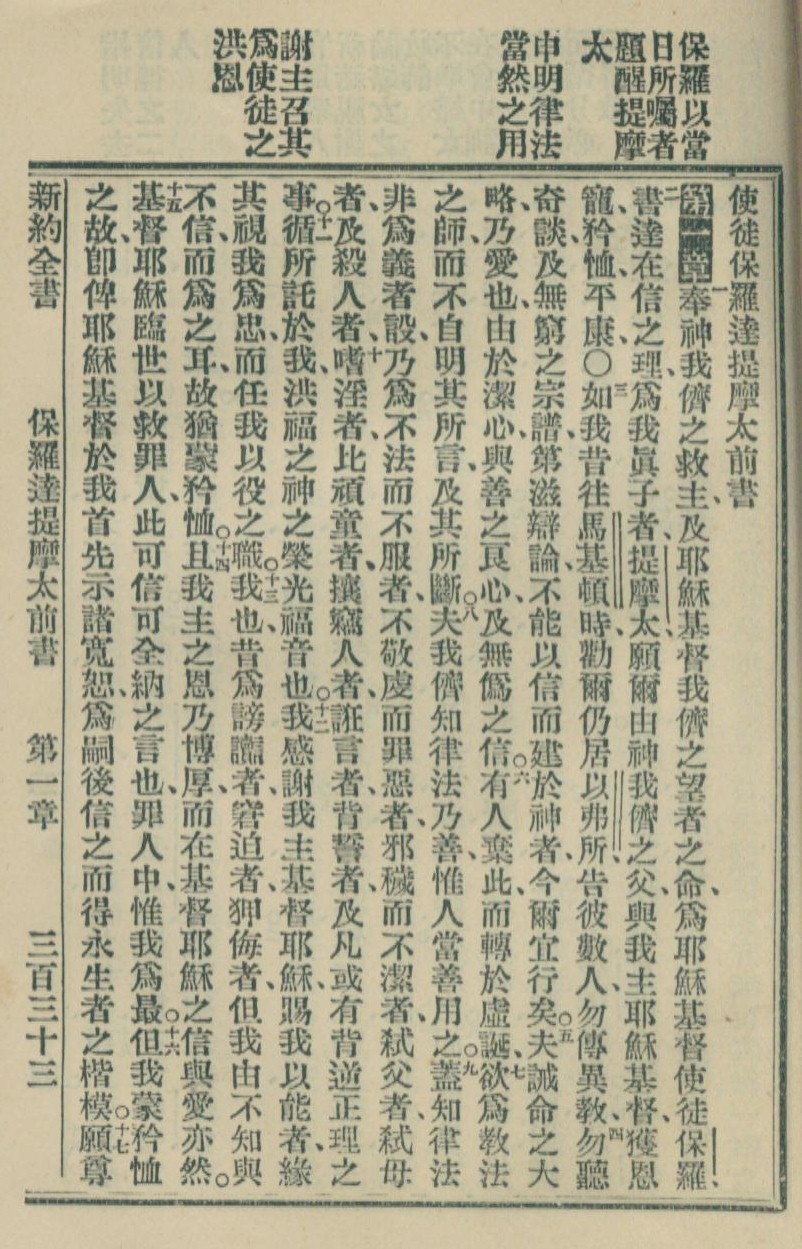 保羅以當
日所囑者
題醒提摩
太
申明律法
當然之用
謝主召其
爲使徒之
洪恩
使徒保羅達提摩太前書
第一章一奉神我儕之救主、及耶穌基督我儕之望者之命、爲耶穌基督使徒保羅、
二書達在信之理、爲我眞子者提摩太、願爾由神我儕之父、與我主耶穌基督、獲恩
寵、矜恤、平康、〇三如我昔往馬基頓時、勸爾仍居以弗所、吿彼數人、勿傳異敎、四勿聽
奇談、及無窮之宗譜、第滋辯論、不能以信而建於神者、今爾宜行矣、〇五夫誡命之大
略、乃愛也、由於潔心、與善之良心、及無僞之信、〇六有人棄此、而轉於虛誕、七欲爲敎法
之師、而不自明其所言、及其所斷、〇八夫我儕知律法乃善、惟人當善用之、〇九蓋知律法
非爲義者設、乃爲不法而不服者、不敬虔而罪惡者、邪穢而不潔者、弒父者、弒母
者、及殺人者、十嗜淫者、比頑童者、攘竊人者、誑言者、背誓者、及凡或有背逆正理之
事、〇十一循所託於我、洪福之神之榮光福音也、〇十二我感謝我主基督耶穌、賜我以能者、緣
其視我爲忠、而任我以役之職、〇十三我也、昔爲謗讟者、窘迫者、狎侮者、但我由不知與
不信、而爲之耳、故猶蒙矜恤、〇十四且我主之恩乃博厚、而在基督耶穌之信與愛亦然。
十五基督耶穌臨世以救罪人、此可信可全納之言也、罪人中、惟我爲最、〇十六但我蒙矜恤
之故、卽俾耶穌基督於我首先示諸寬恕、爲嗣後信之而得永生者之楷模、〇十七願尊
新約全書 保羅達提摩太前書 第一章 三百三十三